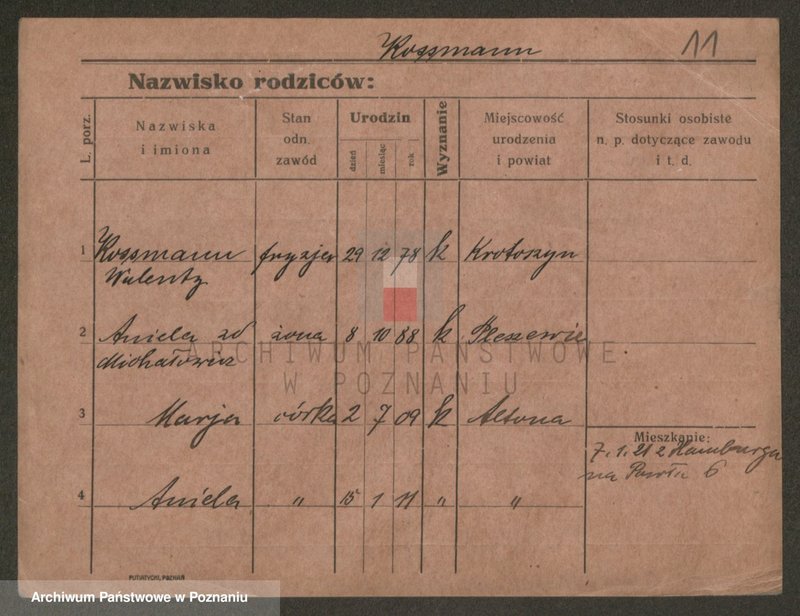 Kossmann 11
Nazwisko rodziców:
L. porz.
Nazwiska
i imiona
Stan
odn.
zawód
Urodzin
dzień
miesiąc
rok
Wyznanie
Miejscowość
urodzenia
i powiat
Stosunki osobiste
n. p. dotyczące zawodu
i t. d.
1 Kossmann fryzjer 29 12 78 k Krotoszyn
Walenty
2 Aniela zd żona 8 10 88 k Pleszewie
Michałowicz
3 Marja córka 2 7 09 k Altona
Mieszkanie:
7.1.21 z Hamburga
na Pawła 6
4 Aniela " 15 1 11 " "
PUTIATYCKI, POZNAŃ
ARCHIWUM PAŃSTWOWE
W POZNANIU
Archiwum Państwowe w Poznaniu